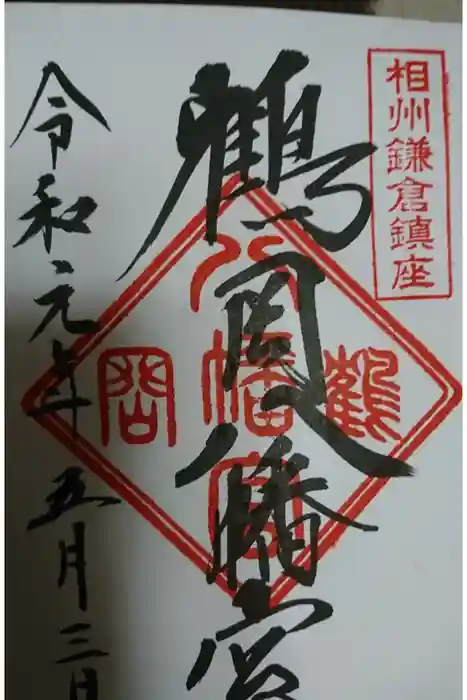 相州鎌倉鎮座
鶴岡八幡宮
鶴
八幡宮
岡
令和元年五月三日